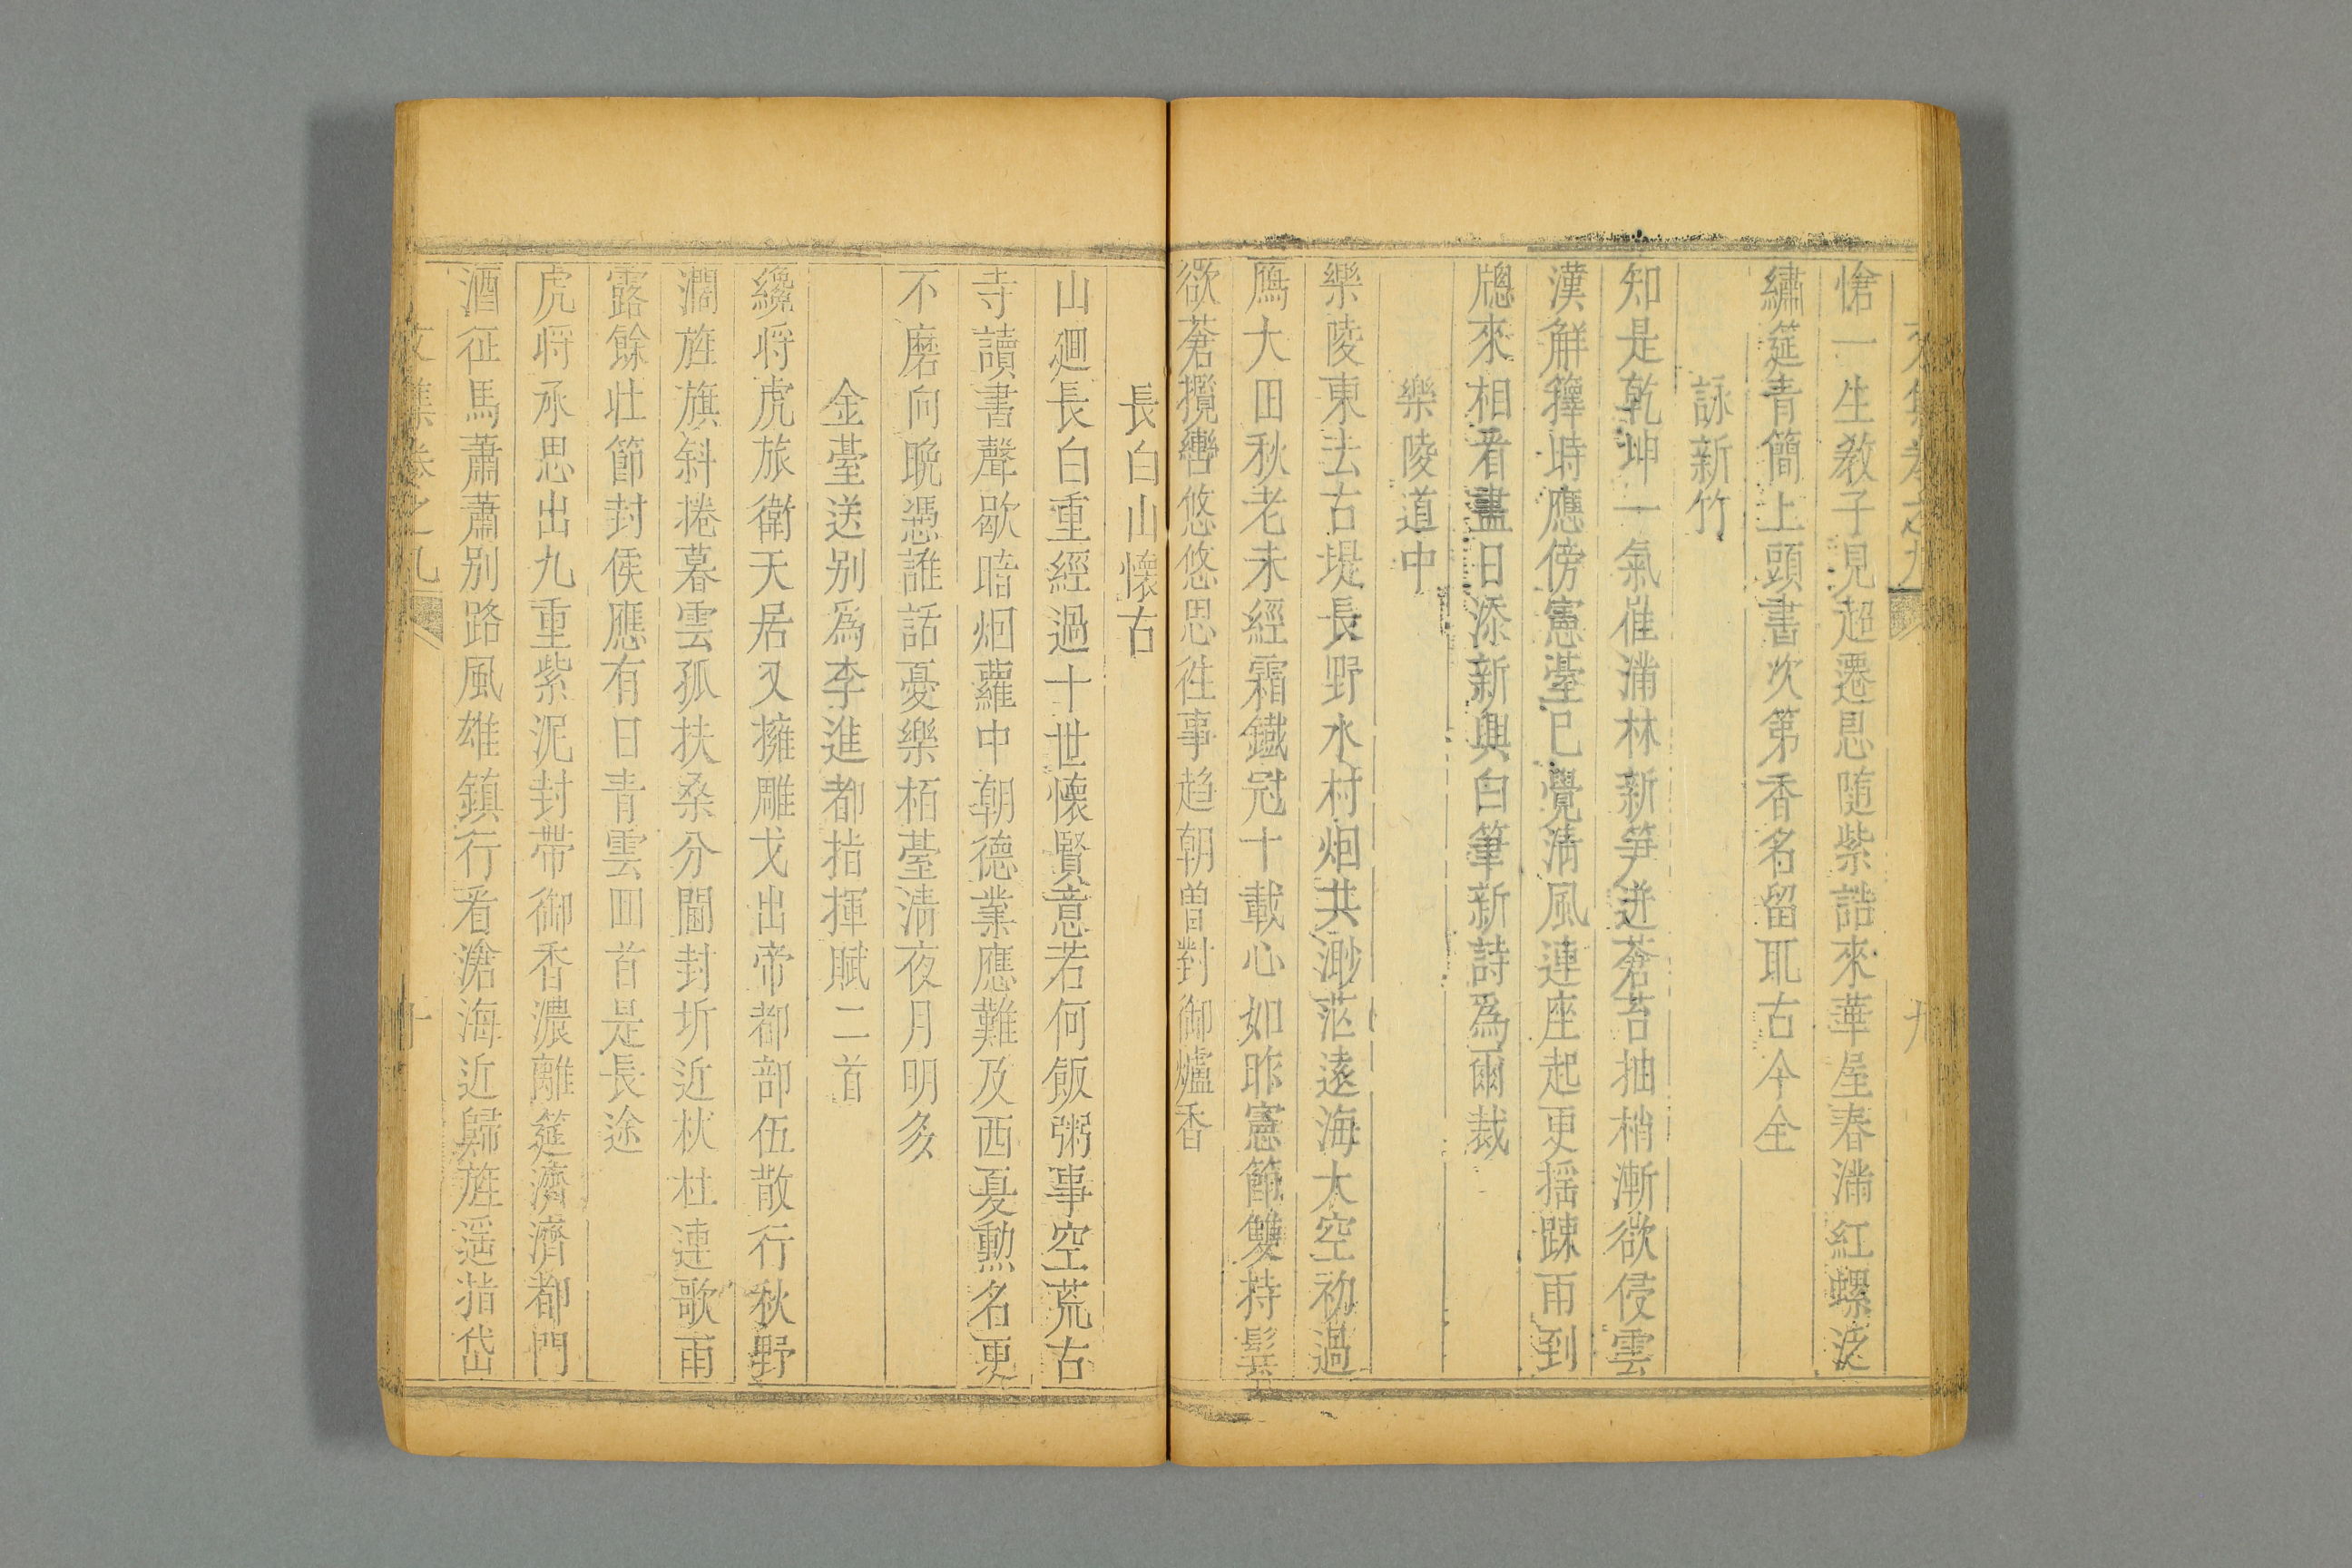 文集卷之九 九
愴一生教子見超遷恩隨紫誥來華屋春滿紅螺泛
繡筵青簡上頭書次第香名留取古今全
詠新竹
知是乾坤一氣催滿林新筍迸蒼苔抽梢漸欲侵雲
漢解籜時應傍憲臺已覺清風連座起更搖踈雨到
牕來相看盡日添新興白筆新詩爲爾裁
樂陵道中
樂陵東去古堤長野水村烟共渺茫遠海大空初過
鴈大田秋老未經霜鐵冠十載心如昨憲節雙持鬂
欲蒼攬轡悠悠思徃事趋朝曽對御爐香
長白山懷古
山廻長白重經過十世懷賢意若何飯粥事空荒古
寺讀書聲歇暗烟蘿中朝德業應難及西夏勳名更
不磨向晩憑誰話憂樂栢臺清夜月明多
金臺送别爲李進都指揮賦二首
纔将虎旅衛天居又擁雕戈出帝都部伍散行秋野
濶旌旗斜捲暮雲孤扶桑分閫封圻近杕杜連歌雨
露餘壮節封侯應有日青雲囬首是長途
虎将承恩出九重紫泥封帶御香濃離筵濟濟都門
酒征馬蕭蕭别路風雄鎮行看滄海近歸旌遥指岱
文集卷之九 十